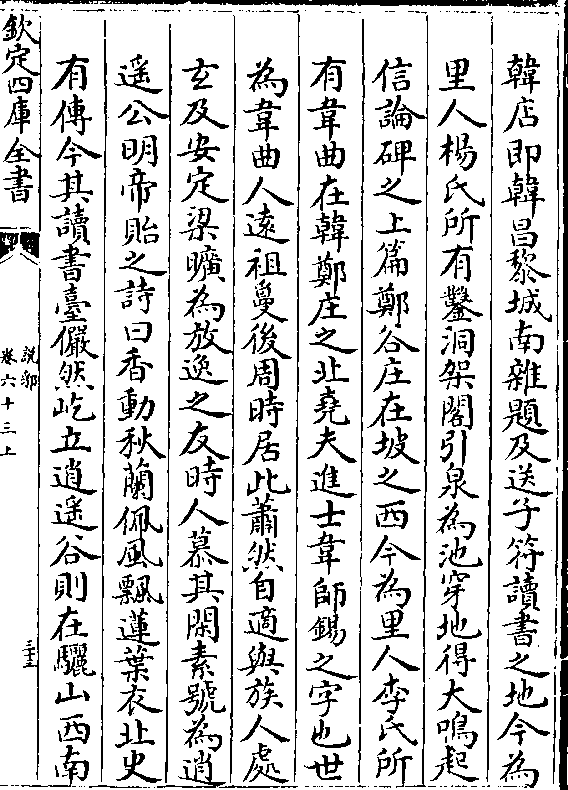 韓店即韓昌黎城南雜題及送子符讀書之地今為
里人楊氏所有鑿洞架閣引泉為池穿地得大鳴起
信論碑之上篇鄭谷庄在坡之西今為里人李氏所
有韋曲在韓鄭庄之北堯夫進士韋師錫之字也世
為韋曲人遠祖敻後周時居此蕭然自適與族人處
玄及安定梁曠為放逸之友時人慕其閑素號為逍
遥公明帝貽之詩曰香動秋蘭佩風飄蓮葉衣北史
有傳今其讀書臺儼然屹立逍遥谷則在驪山西南
欽定四庫全書
說郛
卷六十三上
三十三